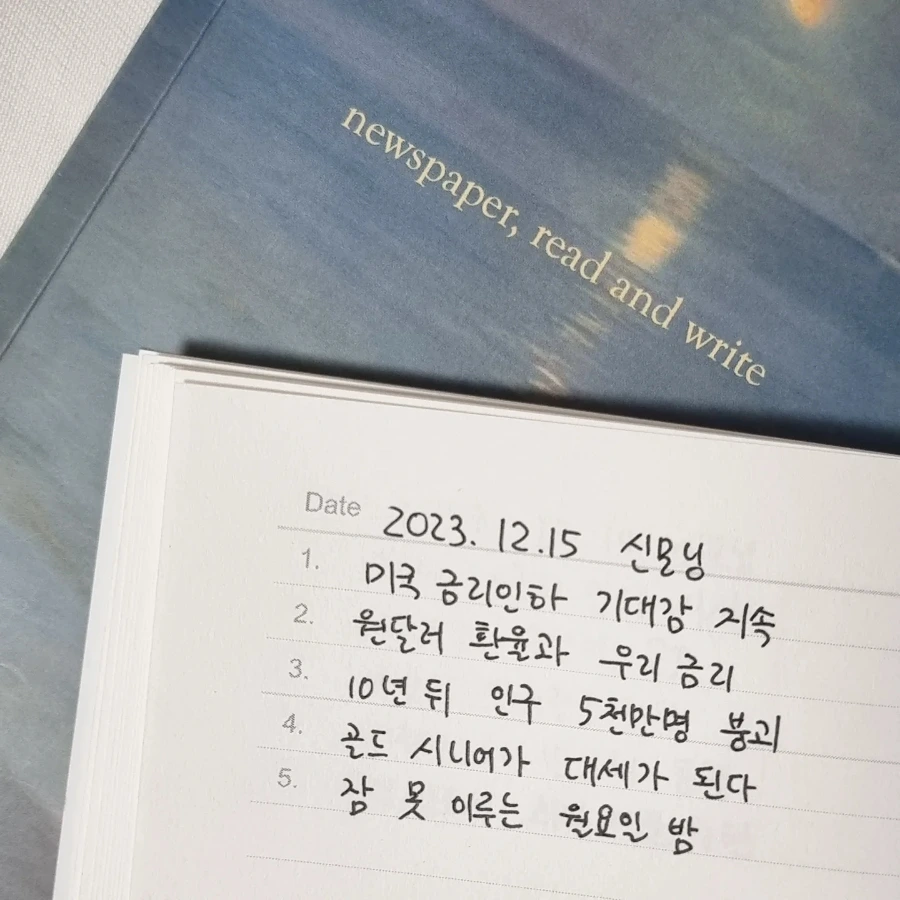 newspaper, read and write
Date 2023. 12.15 신모닝
1. 미국 금리인하 기대감 지속
2. 원달러 환율과 우리 금리
3. 10년 뒤 인구 5천만명 붕괴
4. 골드 시니어가 대세가 된다
5. 잠 못 이루는 월요일 밤